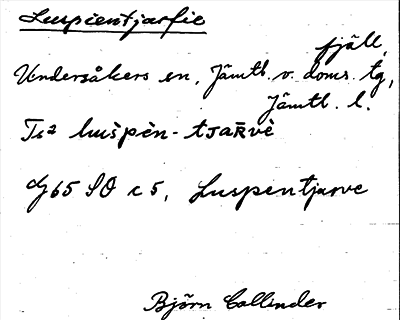 Luspientjarfie
fjäll,
Undersåkers sn, Jämtl. v. doms. tg,
Jämtl. l.
Ts² luspèn-tjaRvè
G65 SO c 5, Luspentjarve
Björn Collinder